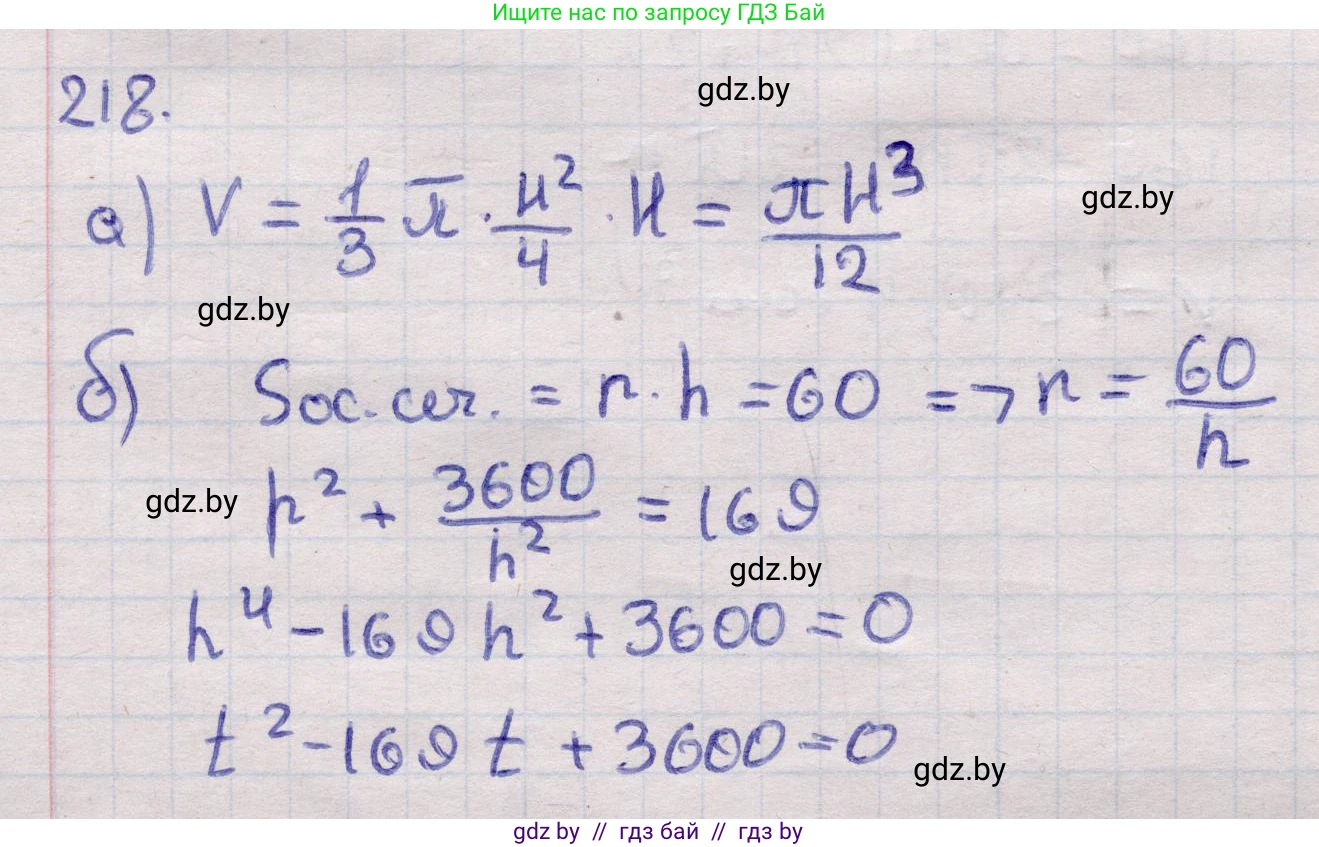 Ищите нас по запросу ГДЗ Бай
218.
gdz.by
а) V = 1/3 π · H²/4 · H = πH³/12
gdz.by
gdz.by
б) Sос.сеч. = r · h = 60 => r = 60/h
gdz.by
h² + 3600/h² = 169
gdz.by
h⁴ - 169 h² + 3600 = 0
t² - 169 t + 3600 = 0
gdz.by
gdz by // гдз бай // gdz by